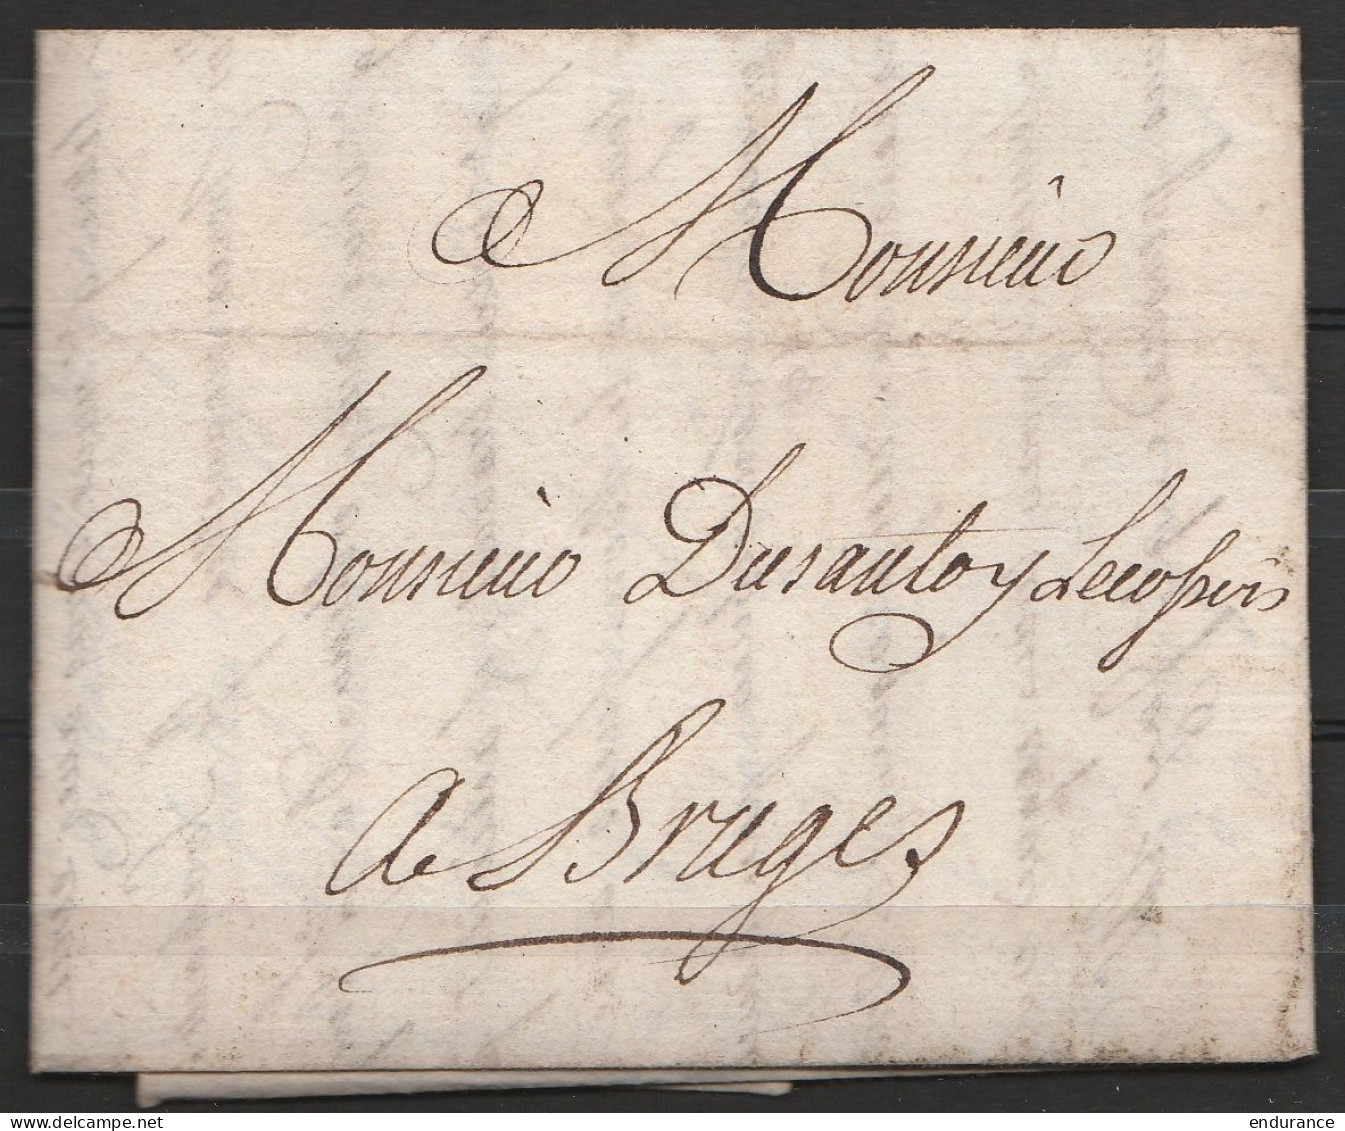 Monsieur
Monsieur Dusautoy
a Bruges
endurance
www.delcampe.net